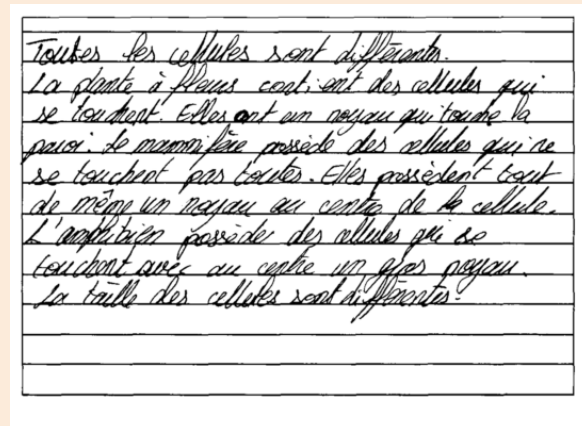 Toutes les cellules sont différentes.
La plante à fleurs contient des cellules qui
se touchent. Elles ont un noyau qui touche la
paroi. Le mammifère possède des cellules qui ne
se touchent pas toutes. Elles possèdent tout
de même un noyau au centre de la cellule.
L'amphibien possède des cellules qui se
touchent avec au centre un gros noyau.
La taille des cellules sont différentes.